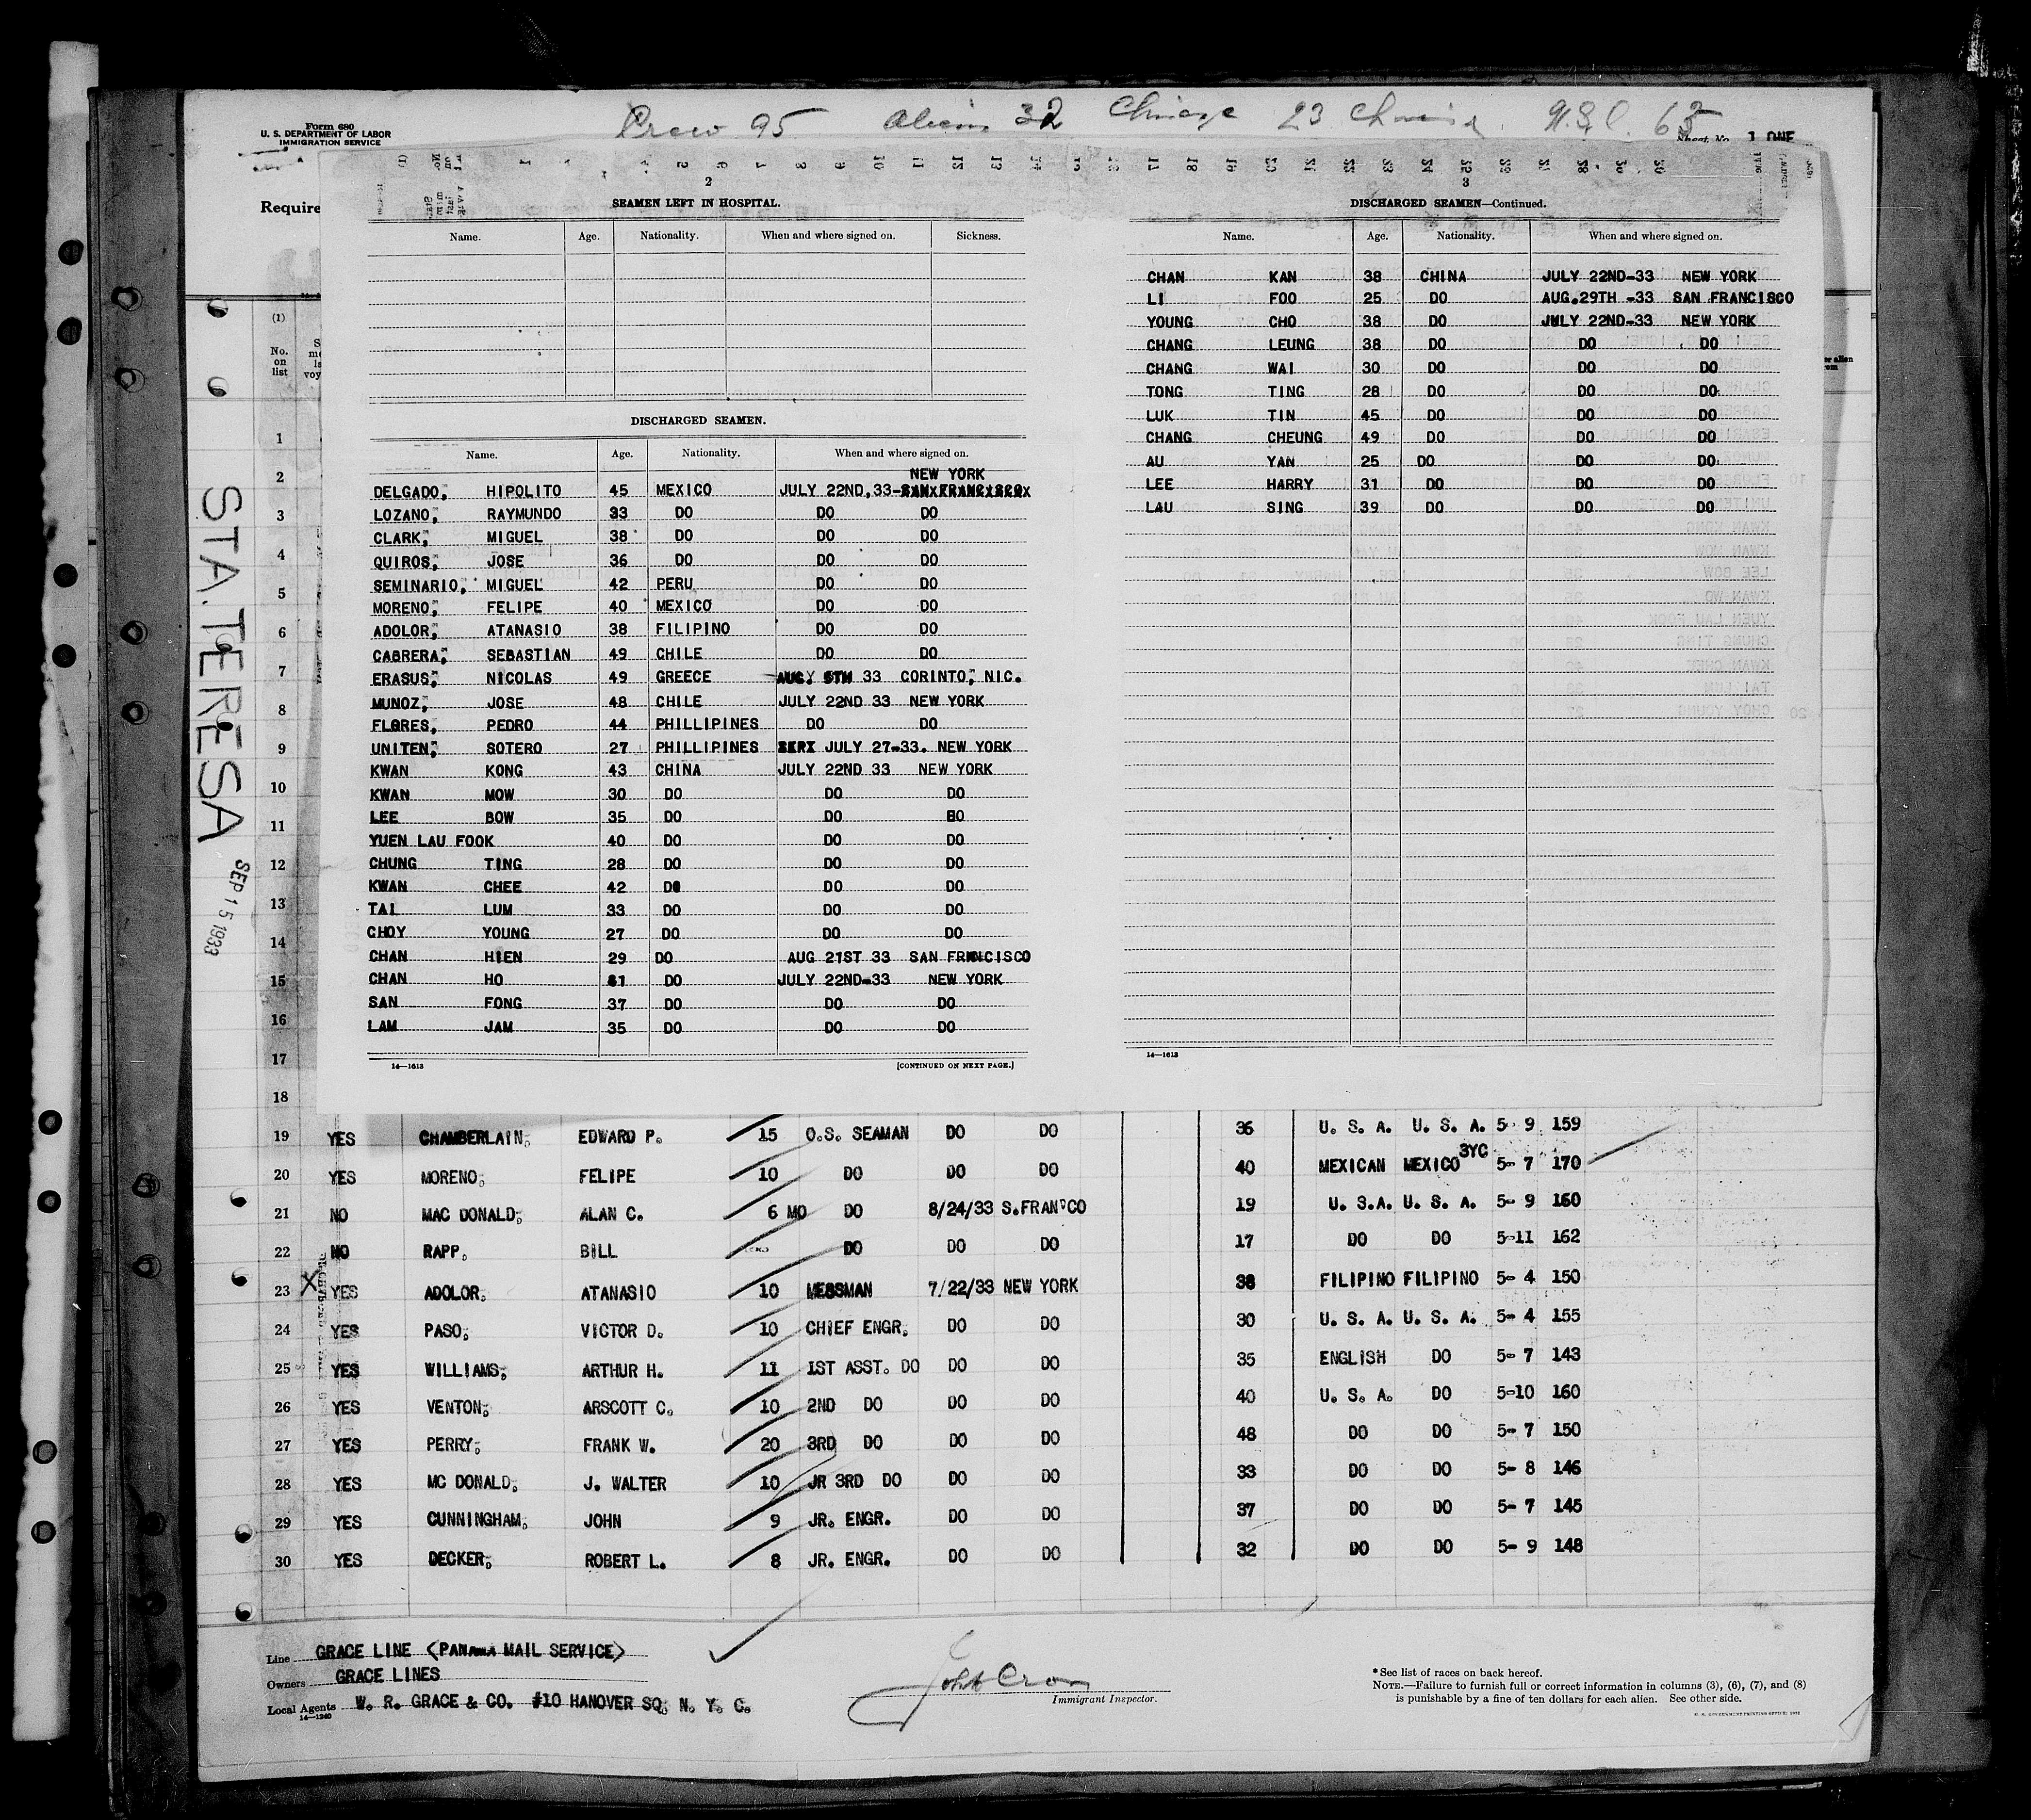 Crew 95 Aliens 32 Chinese 23 U.S.C. 63
Form 680
U. S. DEPARTMENT OF LABOR
IMMIGRATION SERVICE
Sheet No. 1 ONE
Require
(1)
No. on list
STA. TERESA
SEP 15 1933
2
SEAMEN LEFT IN HOSPITAL.
Name. Age. Nationality. When and where signed on. Sickness.
DISCHARGED SEAMEN.
Name. Age. Nationality. When and where signed on.
NEW YORK
DELGADO, HIPOLITO 45 MEXICO JULY 22ND,33-SAN FRANCISCO
LOZANO, RAYMUNDO 33 DO DO DO
CLARK, MIGUEL 38 DO DO DO
QUIROS, JOSE 36 DO DO DO
SEMINARIO, MIGUEL 42 PERU DO DO
MORENO, FELIPE 40 MEXICO DO DO
ADOLOR, ATANASIO 38 FILIPINO DO DO
CABRERA, SEBASTIAN 49 CHILE DO DO
ERASUS, NICOLAS 49 GREECE AUG. 5TH 33 CORINTO, NIC.
MUNOZ, JOSE 48 CHILE JULY 22ND 33 NEW YORK
FLORES, PEDRO 44 PHILLIPINES DO DO
UNITEN, SOTERO 27 PHILLIPINES JULY 27-33. NEW YORK
KWAN KONG 43 CHINA JULY 22ND 33 NEW YORK
KWAN MOW 30 DO DO DO
LEE BOW 35 DO DO DO
YUEN LAU FOOK 40 DO DO DO
CHUNG TING 28 DO DO DO
KWAN CHEE 42 DO DO DO
TAI LUM 33 DO DO DO
CHOY YOUNG 27 DO DO DO
CHAN HIEN 29 DO AUG 21ST 33 SAN FRANCISCO
CHAN HO 61 DO JULY 22ND-33 NEW YORK
SAN FONG 37 DO DO DO
LAM JAM 35 DO DO DO
14—1613 [CONTINUED ON NEXT PAGE.]
3
DISCHARGED SEAMEN—Continued.
Name. Age. Nationality. When and where signed on.
CHAN KAN 38 CHINA JULY 22ND-33 NEW YORK
LI FOO 25 DO AUG.29TH -33 SAN FRANCISCO
YOUNG CHO 38 DO JULY 22ND-33 NEW YORK
CHANG LEUNG 38 DO DO DO
CHANG WAI 30 DO DO DO
TONG TING 28 DO DO DO
LUK TIN 45 DO DO DO
CHANG CHEUNG 49 DO DO DO
AU YAN 25 DO DO DO
LEE HARRY 31 DO DO DO
LAU SING 39 DO DO DO
14—1613
1
2
3
4
5
6
7
8
9
10
11
12
13
14
15
16
17
18
19 YES CHAMBERLAIN, EDWARD P. 15 O.S. SEAMAN DO DO 36 U. S. A. U. S. A. 5- 9 159
20 YES MORENO, FELIPE 10 DO DO DO 40 MEXICAN MEXICO 3YC 5- 7 170
21 NO MAC DONALD, ALAN C. 6 MO DO 8/24/33 S.FRAN'CO 19 U. S.A. U. S. A. 5- 9 160
22 NO RAPP, BILL DO DO DO 17 DO DO 5-11 162
23 X YES ADOLOR, ATANASIO 10 MESSMAN 7/22/33 NEW YORK 38 FILIPINO FILIPINO 5- 4 150
24 YES PASO, VICTOR D. 10 CHIEF ENGR. DO DO 30 U. S. A. U. S. A. 5- 4 155
25 YES WILLIAMS, ARTHUR H. 11 1ST ASST. DO DO DO 35 ENGLISH DO 5- 7 143
26 YES VENTON, ARSCOTT C. 10 2ND DO DO DO 40 U. S. A. DO 5-10 160
27 YES PERRY, FRANK W. 20 3RD DO DO DO 48 DO DO 5- 7 150
28 YES MC DONALD, J. WALTER 10 JR 3RD DO DO DO 33 DO DO 5- 8 146
29 YES CUNNINGHAM, JOHN 9 JR. ENGR. DO DO 37 DO DO 5- 7 145
30 YES DECKER, ROBERT L. 8 JR. ENGR. DO DO 32 DO DO 5- 9 148
Line GRACE LINE (PANAMA MAIL SERVICE)
Owners GRACE LINES
Local Agents W. R. GRACE & CO. #10 HANOVER SQ. N. Y. C.
14—1240
Immigrant Inspector.
*See list of races on back hereof.
NOTE.—Failure to furnish full or correct information in columns (3), (6), (7), and (8)
is punishable by a fine of ten dollars for each alien. See other side.